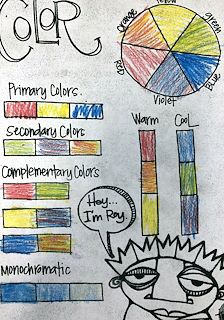 COLOR
Yellow
Orange
Green
Red
Blue
Violet
Primary Colors.
Secondary Colors
Complementary Colors
Monochromatic
Warm
Cool
Hey...
I'm Ray.